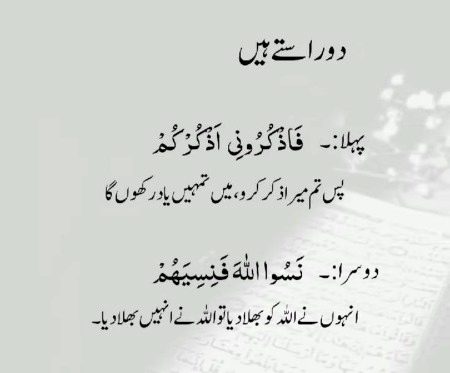 دو راستے ہیں
پہلا:۔ فَاذْكُرُونِی اَذْكُرْكُمْ
پس تم میرا ذکر کرو، میں تمہیں یاد رکھوں گا
دوسرا:۔ نَسُوا اللّٰهَ فَنِسِيَهُمْ
انہوں نے اللہ کو بھلا دیا تو اللہ نے انہیں بھلا دیا۔